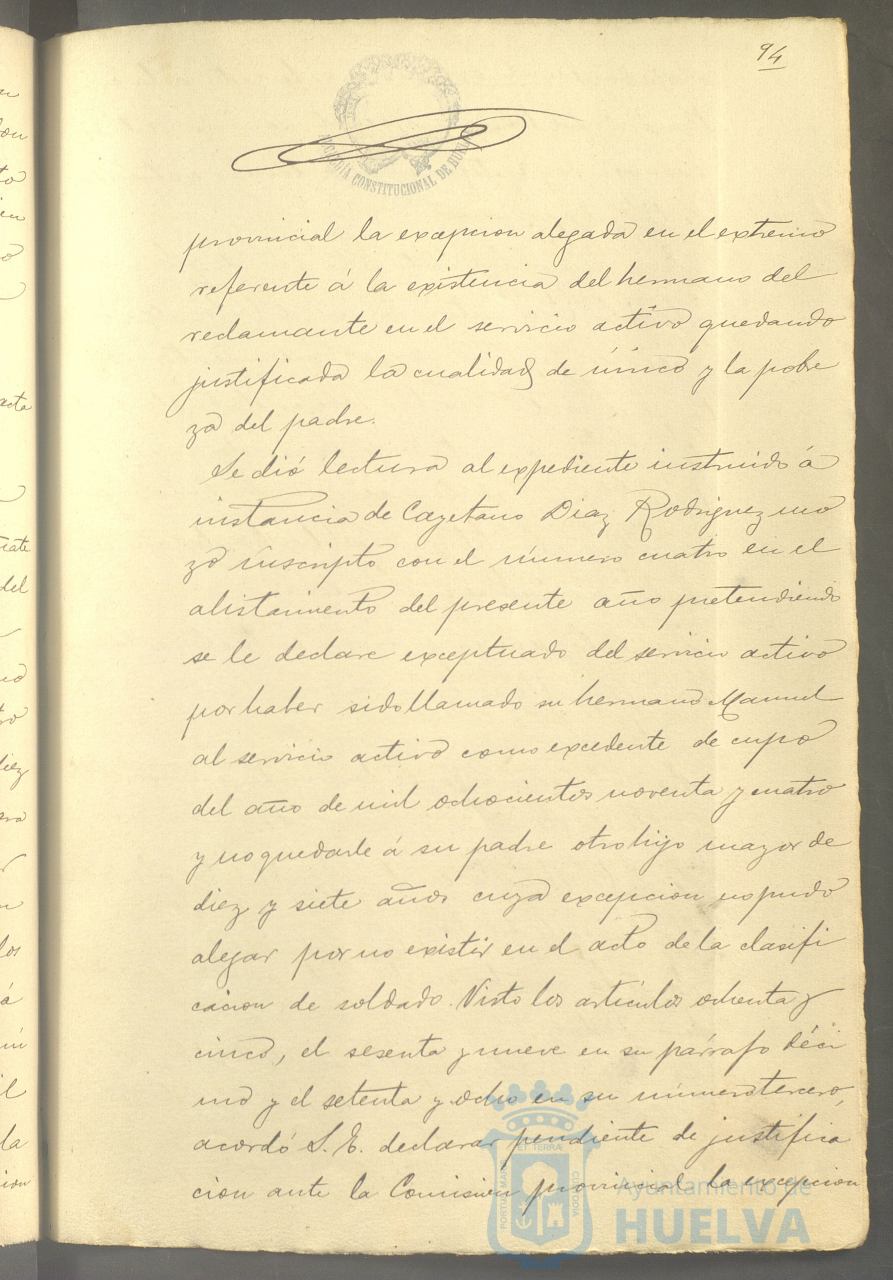 94
ALCALDÍA CONSTITUCIONAL DE HUELVA
provincial la excepcion alegada en el extremo
referente á la existencia del hermano del
reclamante en el servicio activo quedando
justificada la cualidad de único y la pobre
za del padre.
Se dió lectura al expediente instruido á
instancia de Cayetano Diaz Rodriguez mo
zo inscripto con el número cuatro en el
alistamiento del presente año pretendiendo
se le declare exceptuado del servicio activo
por haber sido llamado su hermano Manuel
al servicio activo como excedente de cupo
del año de mil ochocientos noventa y cuatro
y no quedarle á su padre otro hijo mayor de
diez y siete años cuya excepcion no pudo
alegar por no existir en el acto de la clasifi
cacion de soldado. Visto los artículos ochenta y
cinco, el sesenta y nueve en su párrafo déci
mo y el setenta y ocho en su número tercero,
acordó S. E. declarar pendiente de justifica
cion ante la Comision provincial la excepcion
PORTUS MARIS ET TERRÆ CUSTODIA
Ayuntamiento de
HUELVA